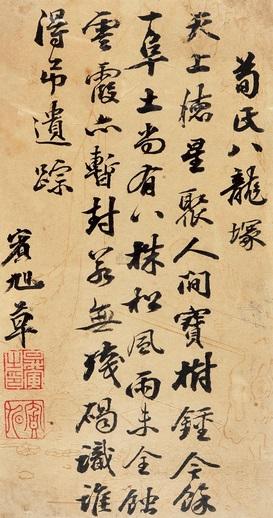 荀氏八龍塚
天上德星聚人間寶樹鍾今餘
一阜土尚有八株松風雨未全蝕
雲霞亦暫封若無殘碣識誰
得吊遺踪
賓旭草